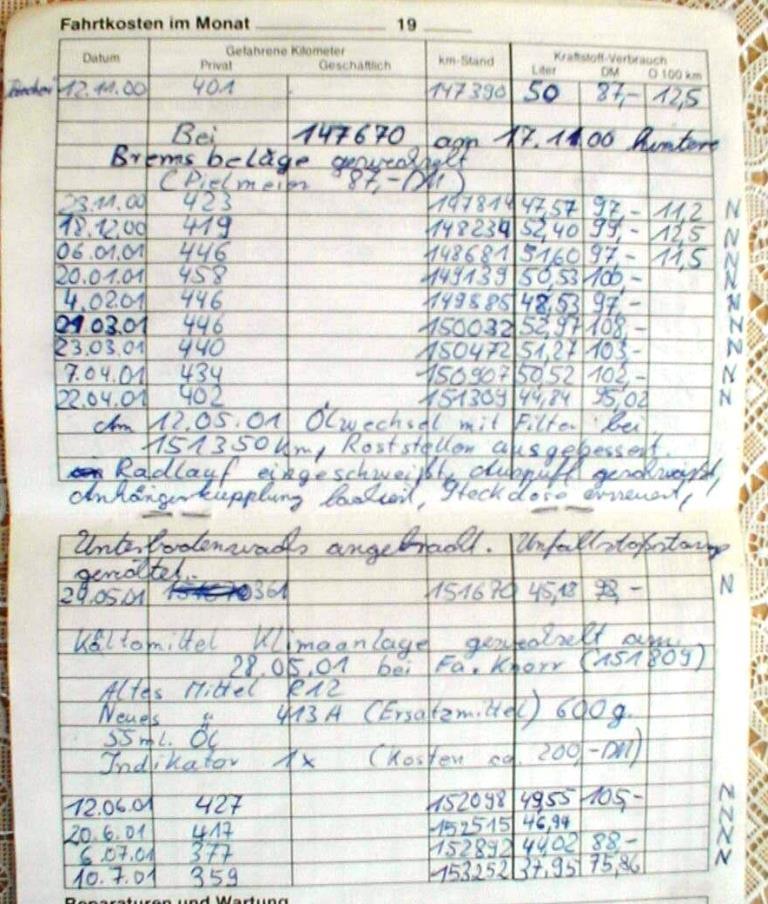 Fahrtkosten im Monat 19
Gefahrene Kilometer Kraftstoff-Verbrauch
Datum Privat Geschäftlich km-Stand Liter DM O 100 km
12.11.00 401 147390 50 87,- 12,5
Bei 147670 am 17.11.00 hintere
Bremsbeläge gewechselt
(Pielmeier 87,-DM)
23.11.00 423 147814 47,57 97,- 11,2 N
18.12.00 419 148234 52,40 99,- 12,5 N
06.01.01 446 148681 51,60 97,- 11,5 N
20.01.01 458 149139 50,53 100,- N
4.02.01 446 149585 48,53 97,- N
01.03.01 446 150032 52,97 108,- N
23.03.01 440 150472 51,27 103,- N
7.04.01 434 150907 50,52 102,- N
22.04.01 402 151309 44,84 95,02 N
Am 12.05.01 Ölwechsel mit Filter bei
151350 km, Roststellen ausgebessert.
Radlauf eingeschweißt, Auspuff geschweißt,
Anhängerkupplung lackiert, Steckdose erneuert,
Unterbodenwachs angebracht. Unfallstoßstange
29.05.01 361 151670 45,18 98,- N
Kältemittel Klimaanlage gewechselt am
28.05.01 bei Fa. Knorr (151809)
Altes Mittel R12
Neues " 413A (Ersatzmittel) 600g.
55ml. Öl
Indikator 1x (Kosten ca. 200,-DM)
12.06.01 427 152098 49,55 105,- N
20.6.01 417 152515 46,94 N
6.07.01 377 152892 44,02 88,- N
10.7.01 359 153252 37,95 75,86 N
Reparaturen und Wartung